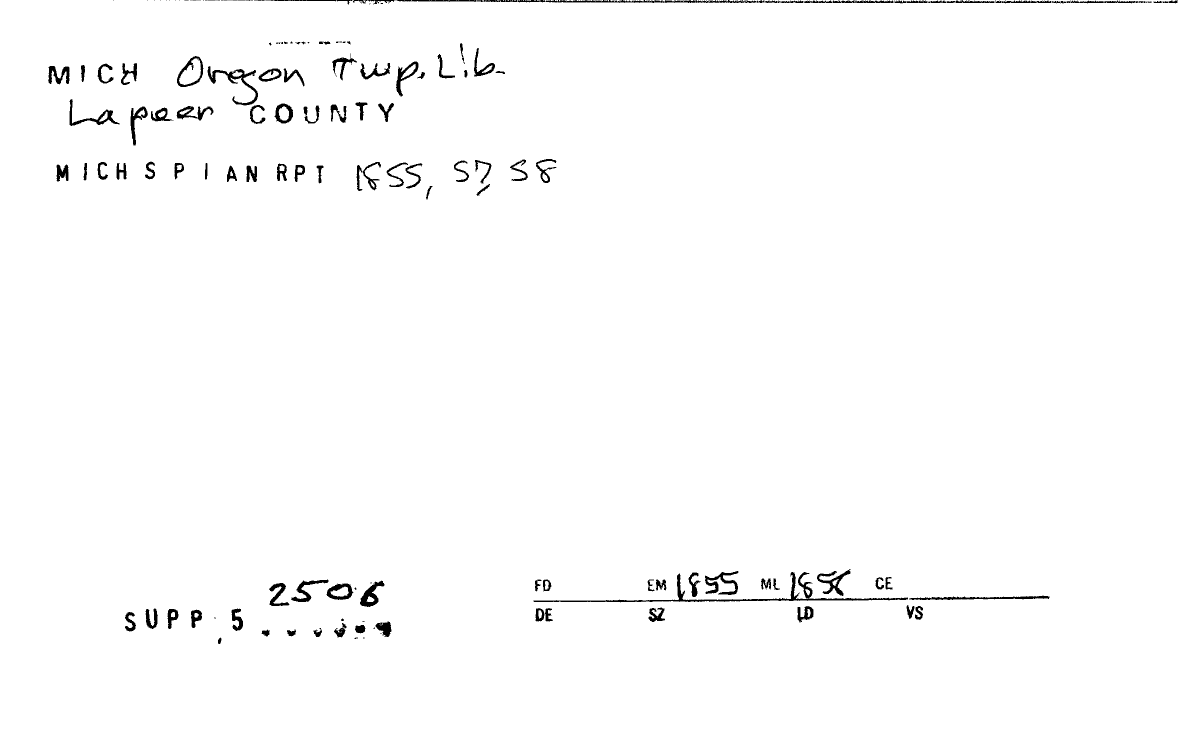 MICH Oregon Twp. Lib.
Lapeer COUNTY
MICH S P I AN RPT 1855, 57, 58
2506
SUPP. 5 ......
FD EM 1855 ML 1858 CE
DE SZ LD VS